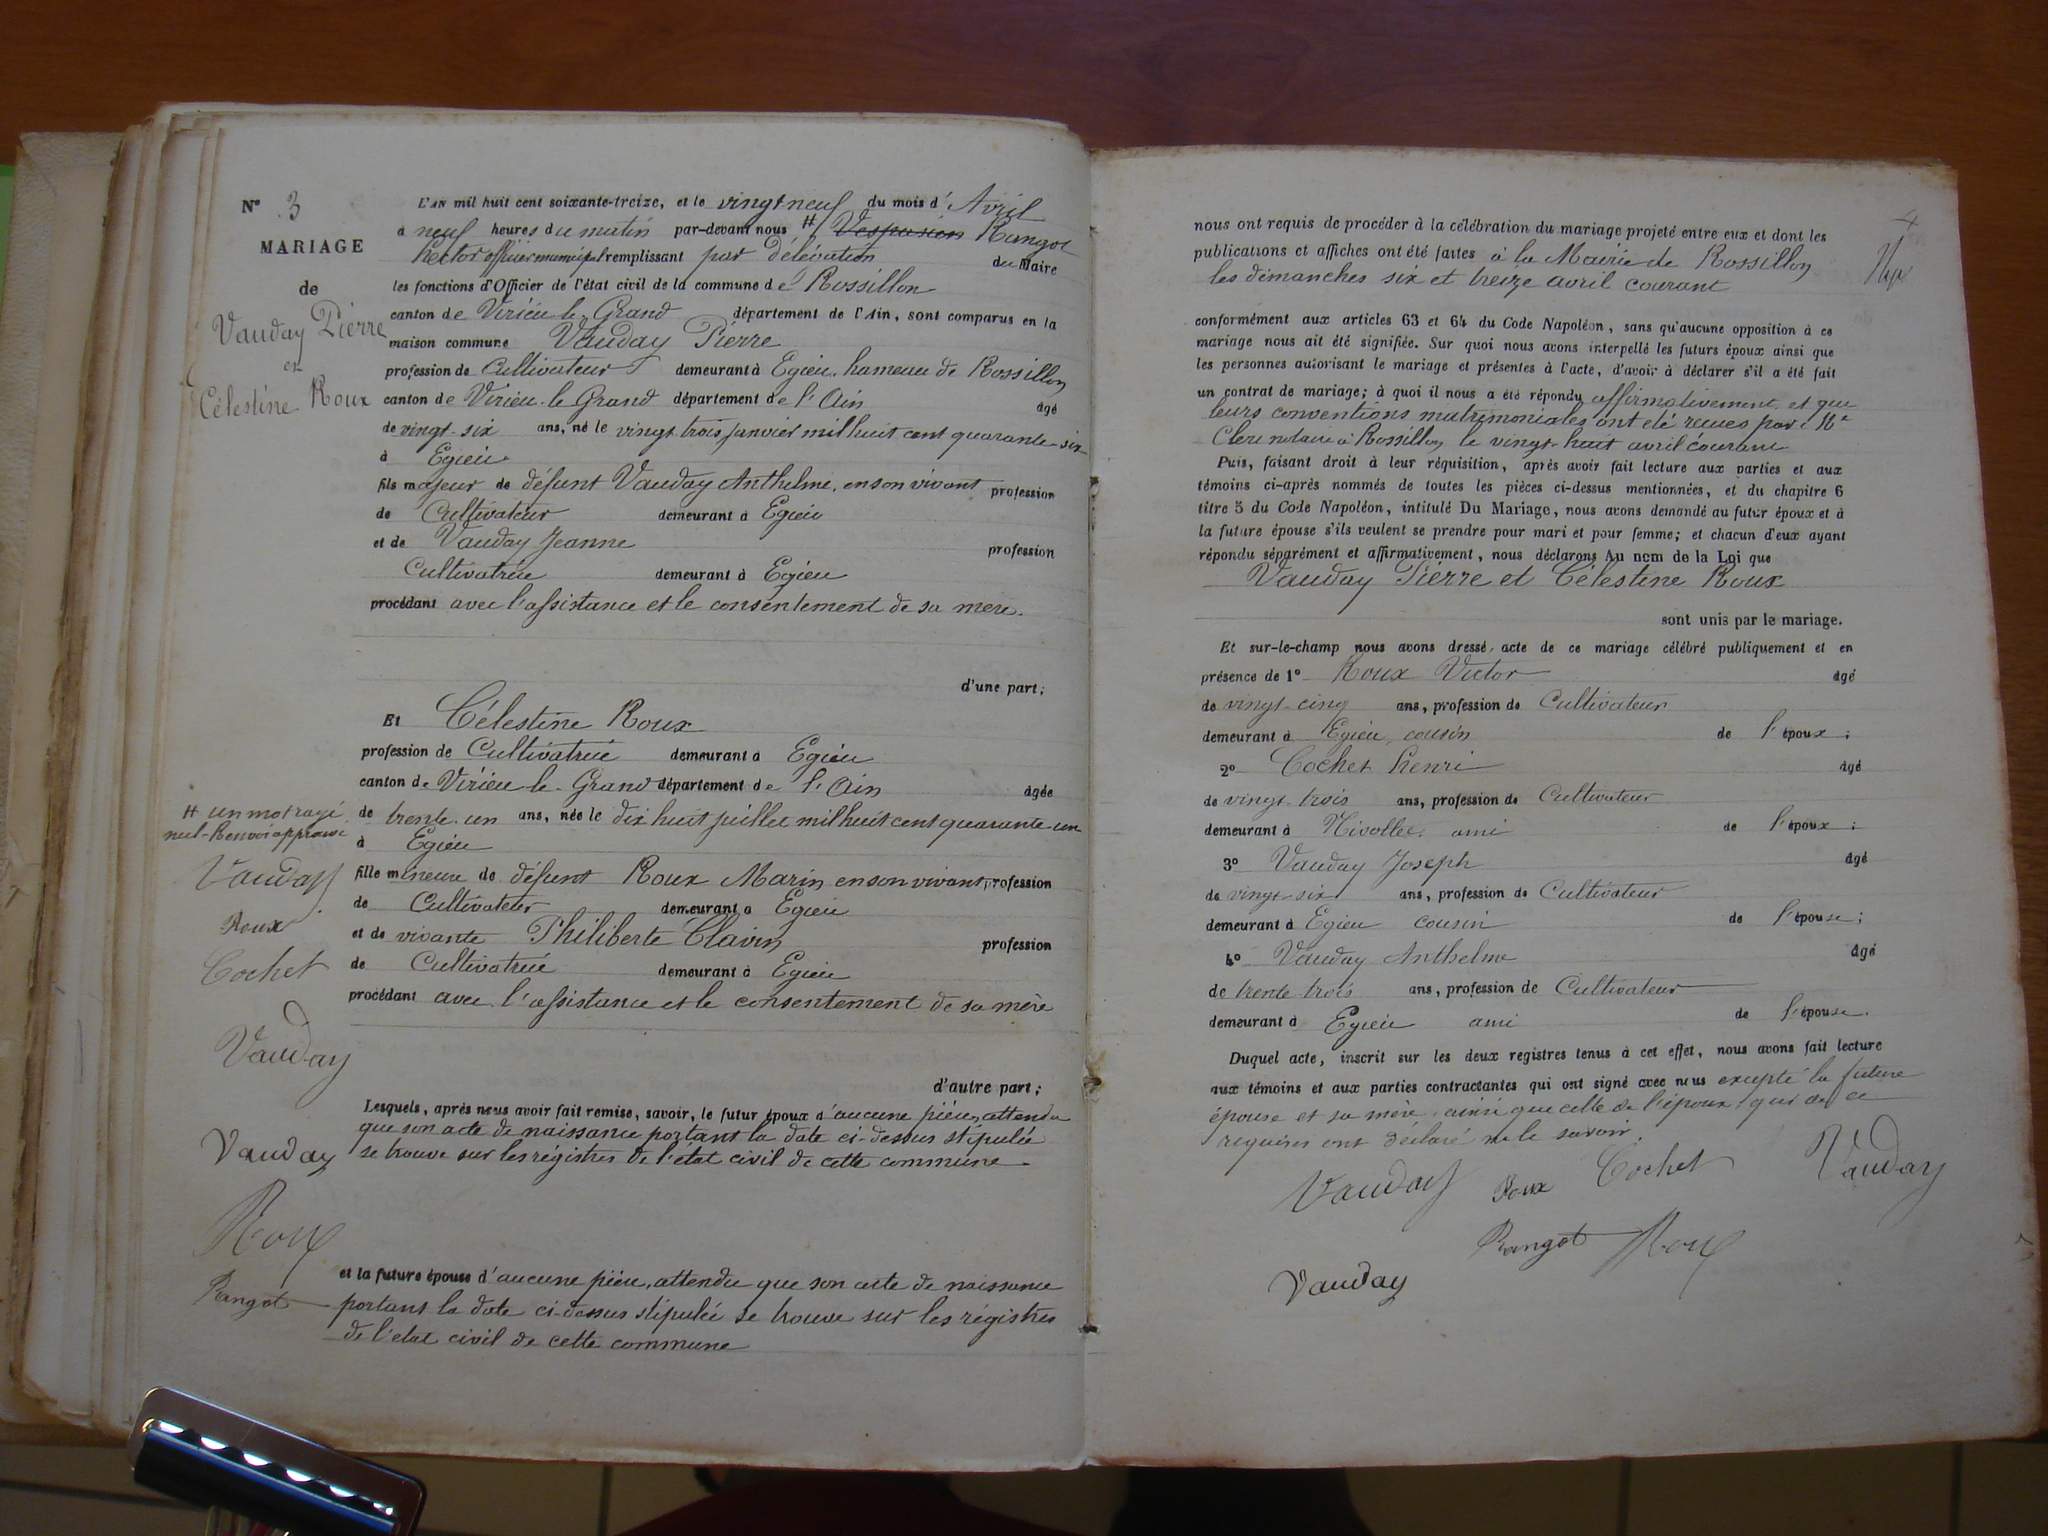 N° 3
MARIAGE
de
Vauday Pierre
et
Célestine Roux
L'AN mil huit cent soixante-treize, et le vingt neuf du mois d'Avril
à neuf heures du matin par-devant nous # Vespasien Rangot
hector officier municipal remplissant par délévation du Maire
les fonctions d'Officier de l'état civil de la commune de Rossillon
canton de Virieu le Grand département de l'Ain, sont comparus en la
maison commune Vauday Pierre
profession de Cultivateur demeurant à Egieu hameau de Rossillon
canton de Virieu-le Grand département de l'Ain âgé
de vingt-six ans, né le vingt trois janvier mil huit cent quarante-six
à Egieu
fils majeur de défunt Vauday Anthelme, en son vivant profession
de Cultivateur demeurant à Egieu
et de Vauday Jeanne profession
Cultivatrice demeurant à Egieu
procédant avec l'assistance et le consentement de sa mère.
d'une part;
Et Célestine Roux
profession de Cultivatrice demeurant à Egieu
canton de Virieu le-Grand département de l'Ain âgée
de trente-un ans, née le dix huit juillet mil huit cent quarante-un
à Egieu
fille mineure de défunt Roux Marin en son vivant profession
de Cultivateur demeurant à Egieu
et de vivante Philiberte Clavin profession
de Cultivatrice demeurant à Egieu
procédant avec l'assistance et le consentement de sa mère
d'autre part;
Lesquels, après nous avoir fait remise, savoir, le futur époux d'aucune pièce, attendu
que son acte de naissance portant la date ci-dessus stipulée
se trouve sur les régistres de l'état civil de cette commune
et la future épouse d'aucune pièce, attendu que son acte de naissance
portant la date ci-dessus stipulée se trouve sur les régistres
de l'état civil de cette commune
# un mot rayé
nul-Renvoi approuvé
Vauday
Roux
Cochet
Vauday
Vauday
Roux
Rangot
4
nous ont requis de procéder à la célébration du mariage projeté entre eux et dont les
publications et affiches ont été faites à la Mairie de Rossillon
les dimanches six et treize avril courant
conformément aux articles 63 et 64 du Code Napoléon, sans qu'aucune opposition à ce
mariage nous ait été signifiée. Sur quoi nous avons interpellé les futurs époux ainsi que
les personnes autorisant le mariage et présentes à l'acte, d'avoir à déclarer s'il a été fait
un contrat de mariage; à quoi il nous a été répondu affirmativement et que
leurs conventions matrimoniales ont été reçues par Me
Clerc notaire à Rossillon le vingt-huit avril courant
Puis, faisant droit à leur réquisition, après avoir fait lecture aux parties et aux
témoins ci-après nommés de toutes les pièces ci-dessus mentionnées, et du chapitre 6
titre 5 du Code Napoléon, intitulé Du Mariage, nous avons demandé au futur époux et à
la future épouse s'ils veulent se prendre pour mari et pour femme; et chacun d'eux ayant
répondu séparément et affirmativement, nous déclarons Au nom de la Loi que
Vauday Pierre et Célestine Roux
sont unis par le mariage.
Et sur-le-champ nous avons dressé acte de ce mariage célébré publiquement et en
présence de 1° Roux Victor âgé
de vingt-cinq ans, profession de Cultivateur
demeurant à Egieu, cousin de l'époux;
2° Cochet henri âgé
de vingt-trois ans, profession de Cultivateur
demeurant à Nivollet ami de l'époux;
3° Vauday Joseph âgé
de vingt-six ans, profession de Cultivateur
demeurant à Egieu cousin de l'épouse;
4° Vauday Anthelme âgé
de trente-trois ans, profession de Cultivateur
demeurant à Egieu ami de l'épouse.
Duquel acte, inscrit sur les deux registres tenus à cet effet, nous avons fait lecture
aux témoins et aux parties contractantes qui ont signé avec nous excepté la future
épouse et sa mère, ainsi que celle de l'époux, qui de ce
requises ont déclaré ne le savoir.
Vauday Roux Cochet Vauday
Rangot Roux
Vauday